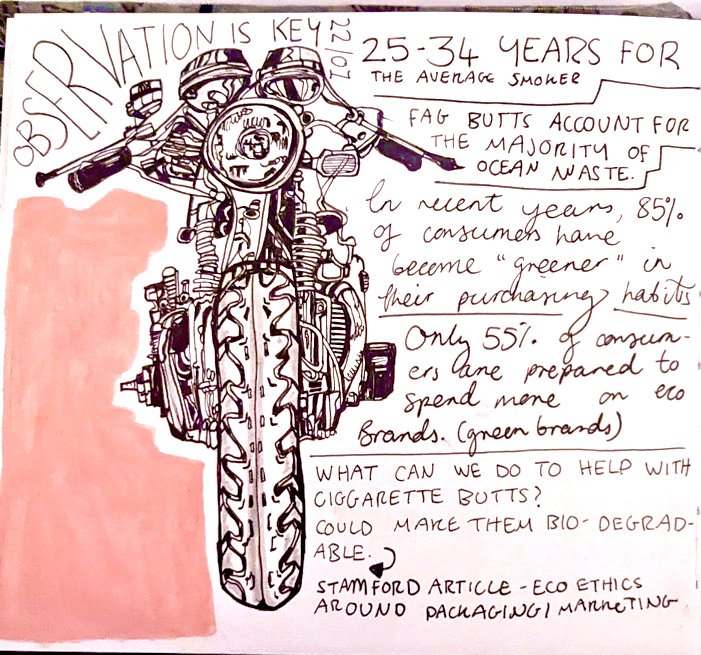 OBSERVATION IS KEY
22/01
25-34 YEARS FOR
THE AVERAGE SMOKER
FAG BUTTS ACCOUNT FOR
THE MAJORITY OF
OCEAN WASTE.
In recent years, 85%
of consumers have
become "greener" in
their purchasing habits
Only 55% of consum-
ers are prepared to
spend more on eco
Brands. (green brands)
WHAT CAN WE DO TO HELP WITH
CIGGARETTE BUTTS?
COULD MAKE THEM BIO-DEGRAD-
ABLE.
STAMFORD ARTICLE - ECO ETHICS
AROUND PACKAGING/MARKETING